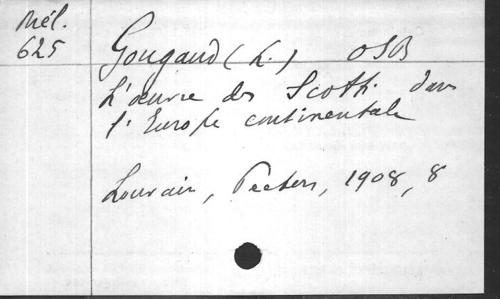 Mél.
625
Gougaud (L.) OSB
L'œuvre des Scotti dans
l'Europe continentale
Louvain, Peeters, 1908, 8